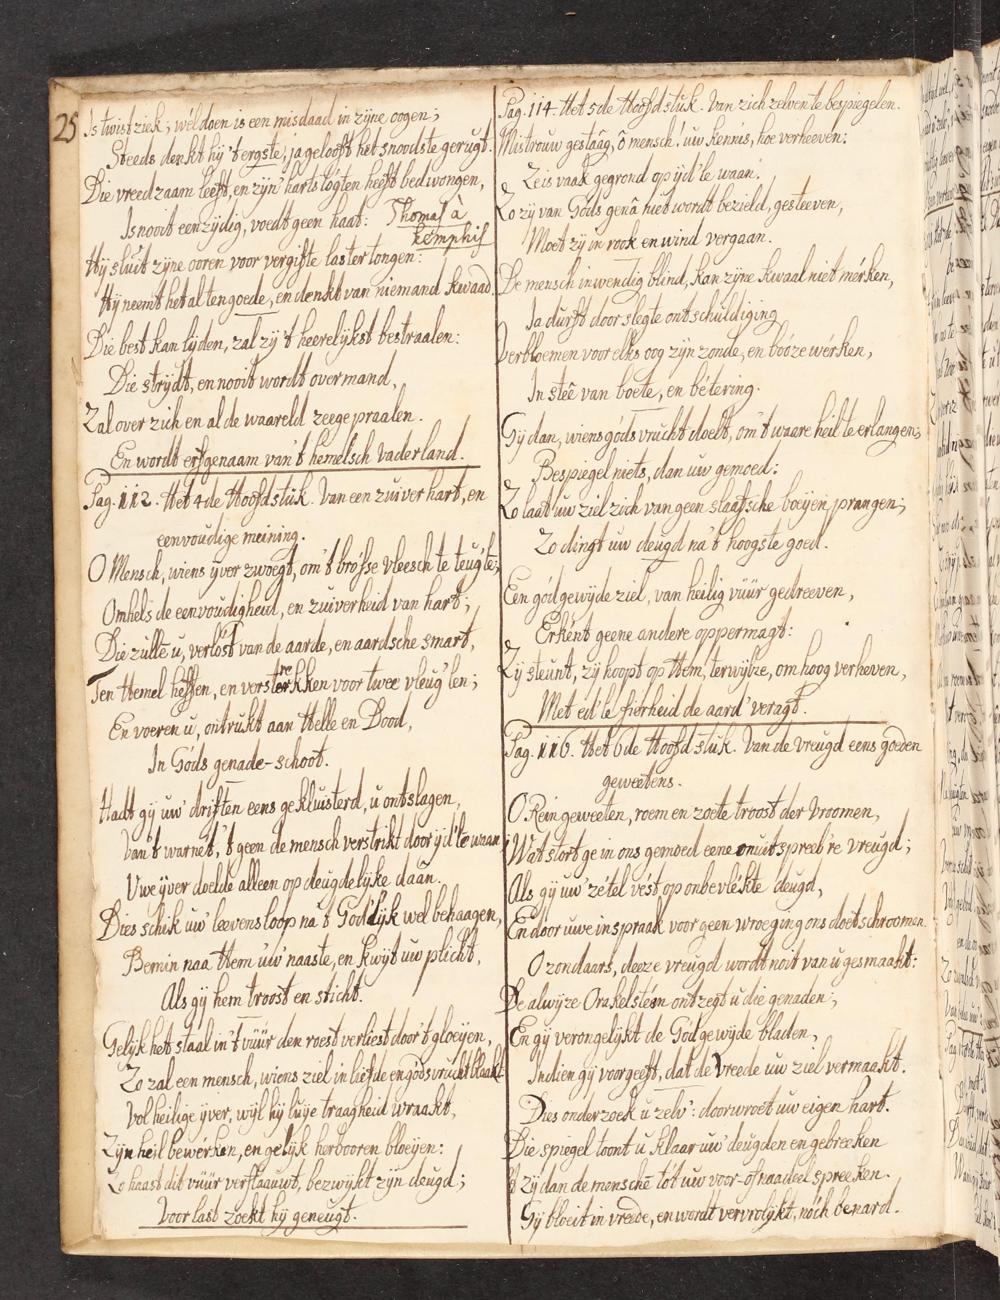 25
Is twistziek; wél doen is een misdaad in zijne oogen;
Steeds denkt hij 't ergste, ja gelooft het snoodste gerugt.
Die vreedzaam leeft, en zijn' harts tógten heeft bedwongen,
Is nooit eenzijdig, voedt geen haat: Thomas à
Kemphis
Hij sluit zijne ooren voor vergifte lastertongen:
Hij neemt het al ten goede, en denkt van niemand kwaad.
Die best kan lijden, zal zij 't heerelijkst bestraalen:
Die strijdt, en nooit wordt overmand,
Zal over zich en al de waareld zeegepraalen.
En wordt erfgenaam van 't hemelsch Vaderland.
Pag. 112. Het 4de Hoofdstuk. Van een zuiver hart, en
eenvoudige meining.
O Mensch, wiens ijver zwoegt, om 't brósse vleesch te teug'len,
Omhels de eenvoudigheid, en zuiverheid van hart;
Die zulle u, verlóst van de aarde, en aardsche smart,
Ten Hemel heffen, en verstrekken voor twee vleug'len;
En voeren u, ontrukt aan Helle en Dood,
In Góds genade-schoot.
Hadt gij uw' driften eens gekluisterd, u ontslagen,
Van 't warnet, 't geen de mensch verstrikt door ijd'le waan
Uwe ijver doelde alleen op deugdelijke daân.
Dies schik uw' leevensloop na 't God'lijk wel behaagen,
Bemin naa Hem uw' naaste, en kwijt uw plicht,
Als gij hem troost en sticht.
Gelijk het staal in 't vuur den roest verliest door 't gloeijen,
Zo zal een mensch, wiens ziel in liefde en gódsvrucht blaakt
Vol heilige ijver, wijl hij luije traagheid wraakt,
Zijn heil bewérken, en gelijk herbooren bloeijen:
Zo haast dit vuur verflaauwt, bezwijkt zijn deugd;
Voor last zoekt hij geneugt.
Pag. 114. Het 5de Hoofdstuk. Van zich zelven te bespiegelen.
Mistrouw gestâag, ô mensch! uw kennis, hoe verheeven:
Ze is vaak gegrond op ijd'le waan.
Zo zij van Góds genâ niet wordt bezield, gesteeven,
Moet zij in rook en wind vergaan.
De mensch inwendig blind, kan zijne kwaal niet mérken,
Ja durft door slegte ontschuldiging
Verbloemen voor elks oog zijn zonde, en bóoze wérken,
In steê van boete, en bétering.
Gij dan, wiens gódsvrucht doelt, om 't waare heil te erlangen;
Bespiegel niets, dan uw gemoed:
Zo laat uw ziel zich van geen slaafsche boeijen prangen;
Zo dingt uw deugd na 't hoogste goed.
Een gódgewijde ziel, van heilig vuur gedreeven,
Erként geene andere oppermagt:
Zij steunt, zij hoopt op Hem, terwijl ze, om hoog verheven,
Met ed'le fierheid de aard' veragt.
Pag. 116. Het 6de Hoofdstuk. Van de vreugd eens goeden
geweetens.
O Rein geweeten, roem en zoete troost der Vroomen,
Wat stort ge in ons gemoed eene onuitspreeb're vreugd;
Als gij uw' zétel vést op onbevlékte deugd,
En door uwe inspraak voor geen wroeging ons doet schroomen.
O zondaars, deeze vreugd wordt nóit van u gesmaakt:
De alwijze Orakelstém ontzegt u die genaden;
En gij verongelijkt de Gódgewijde bladen,
Indien gij voorgeeft, dat de Vreede uw ziel vermaakt.
Dies onderzoek u zelv': doorwroet uw eigen hart.
Die spiegel toont u klaar uw' deugden en gebreeken
't zij dan de menschē tót uw voor- of naadeel spreeken.
Gij bloeit in vrede, en wordt vervrolijkt, nóch benard.